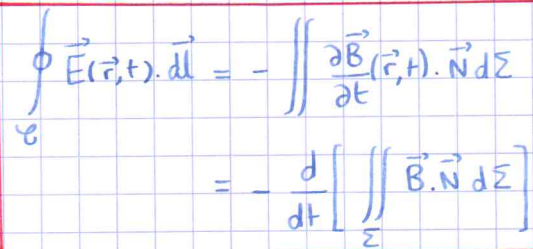 ∮_𝒞 E⃗(r⃗,t).dl⃗ = - ∬ ∂B⃗/∂t (r⃗,t). N⃗ dΣ
= - d/dt [ ∬_Σ B⃗.N⃗ dΣ ]